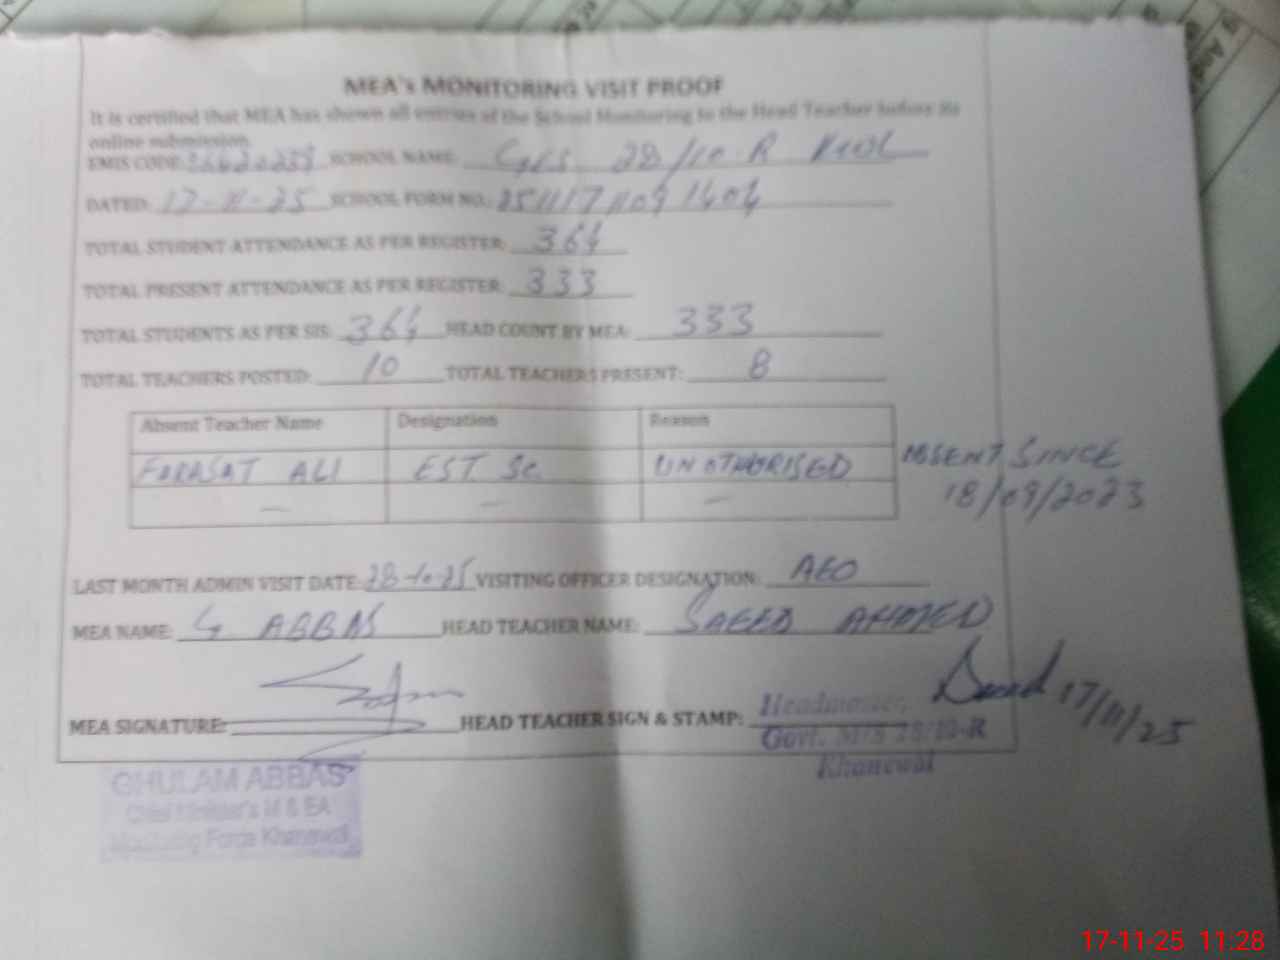 MEA's MONITORING VISIT PROOF
It is certified that MEA has shown all entries of the School Monitoring to the Head Teacher before its
online submission.
EMIS CODE: SCHOOL NAME: 28/10-R KWL
DATED: 17-11-25 SCHOOL FORM NO.: 2511171109
TOTAL STUDENT ATTENDANCE AS PER REGISTER: 364
TOTAL PRESENT ATTENDANCE AS PER REGISTER: 333
TOTAL STUDENTS AS PER SIS: 364 HEAD COUNT BY MEA: 333
TOTAL TEACHERS POSTED: 10 TOTAL TEACHERS PRESENT: 8
Absent Teacher Name Designation Reason
FARASAT ALI EST Sc UNOTHORISED ABSENT SINCE
18/09/2023
LAST MONTH ADMIN VISIT DATE: 28-10-25 VISITING OFFICER DESIGNATION: AEO
MEA NAME: G ABBAS HEAD TEACHER NAME: SAEED AHMED
MEA SIGNATURE: HEAD TEACHER SIGN & STAMP: Headmaster, 17/11/25
Govt. M/S 28/10-R
Khanewal
GHULAM ABBAS
Chief Minister's M & EA
Monitoring Force Khanewal
17-11-25 11:28